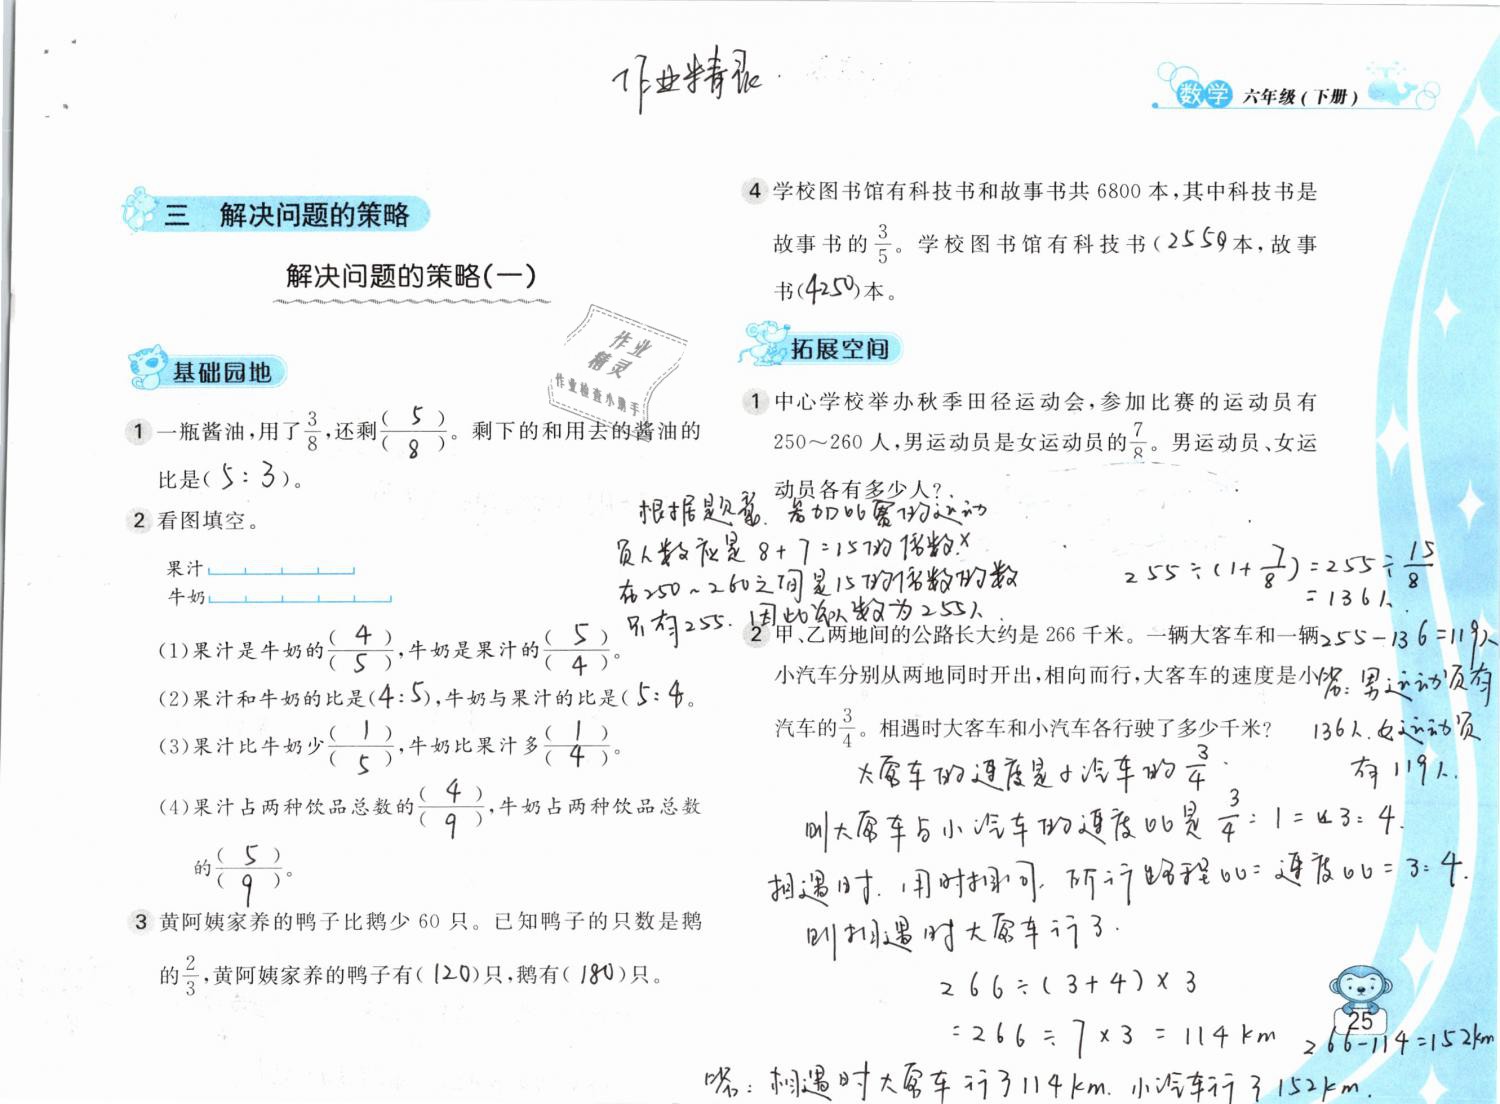 作业精灵
数学 六年级(下册)
三 解决问题的策略
解决问题的策略(一)
作业
精灵
作业检查小助手
基础园地
1 一瓶酱油,用了3/8,还剩(5)/(8)。剩下的和用去的酱油的
比是(5:3)。
2 看图填空。
果汁
牛奶
(1)果汁是牛奶的(4)/(5),牛奶是果汁的(5)/(4)。
(2)果汁和牛奶的比是(4:5),牛奶与果汁的比是(5:4。
(3)果汁比牛奶少(1)/(5),牛奶比果汁多(1)/(4)。
(4)果汁占两种饮品总数的(4)/(9),牛奶占两种饮品总数
的(5)/(9)。
3 黄阿姨家养的鸭子比鹅少 60 只。已知鸭子的只数是鹅
的2/3,黄阿姨家养的鸭子有(120)只,鹅有(180)只。
4 学校图书馆有科技书和故事书共 6800 本,其中科技书是
故事书的3/5。学校图书馆有科技书(2550)本,故事
书(4250)本。
拓展空间
1 中心学校举办秋季田径运动会,参加比赛的运动员有
250～260 人,男运动员是女运动员的7/8。男运动员、女运
动员各有多少人?
根据题意,参加比赛的运动
员人数应是 8+7=15的倍数,
在250~260之间是15的倍数的数
只有255.因此总人数为255人
255÷(1+7/8)=255÷15/8
=136人.
255-136=119人
答:男运动员有
136人.女运动员
有119人.
2 甲、乙两地间的公路长大约是 266 千米。一辆大客车和一辆
小汽车分别从两地同时开出,相向而行,大客车的速度是小
汽车的3/4。相遇时大客车和小汽车各行驶了多少千米?
大客车的速度是小汽车的3/4.
则大客车与小汽车的速度比是3/4:1=3:4.
相遇时.用时相同,所行路程比=速度比=3:4.
则相遇时大客车行了.
266÷(3+4)×3
=266÷7×3=114km
266-114=152km
答:相遇时大客车行了114km.小汽车行了152km.
25